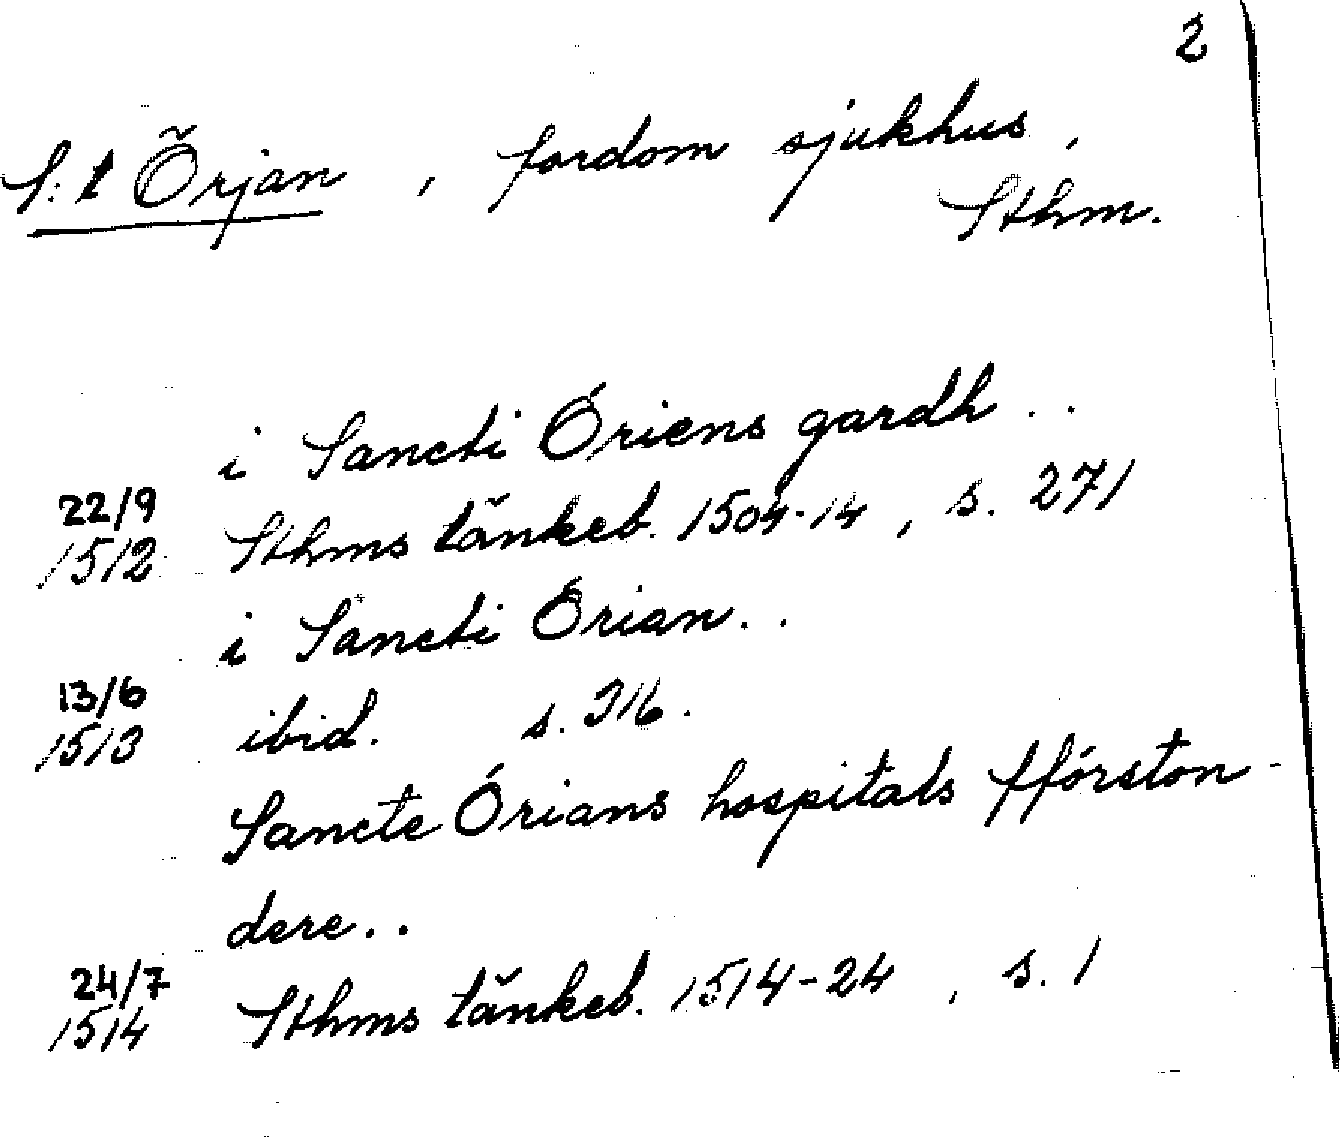 2
S:t Örjan, fordom sjukhus,
Sthm.
i Sancti Óriens gardh..
22/9
1512 Sthms tänkeb. 1504-14, s. 271
i Sancti Órian..
13/6
1513 ibid. s. 316.
Sancte Órians hospitals fförston-
dere..
24/7
1514 Sthms tänkeb. 1514-24, s. 1